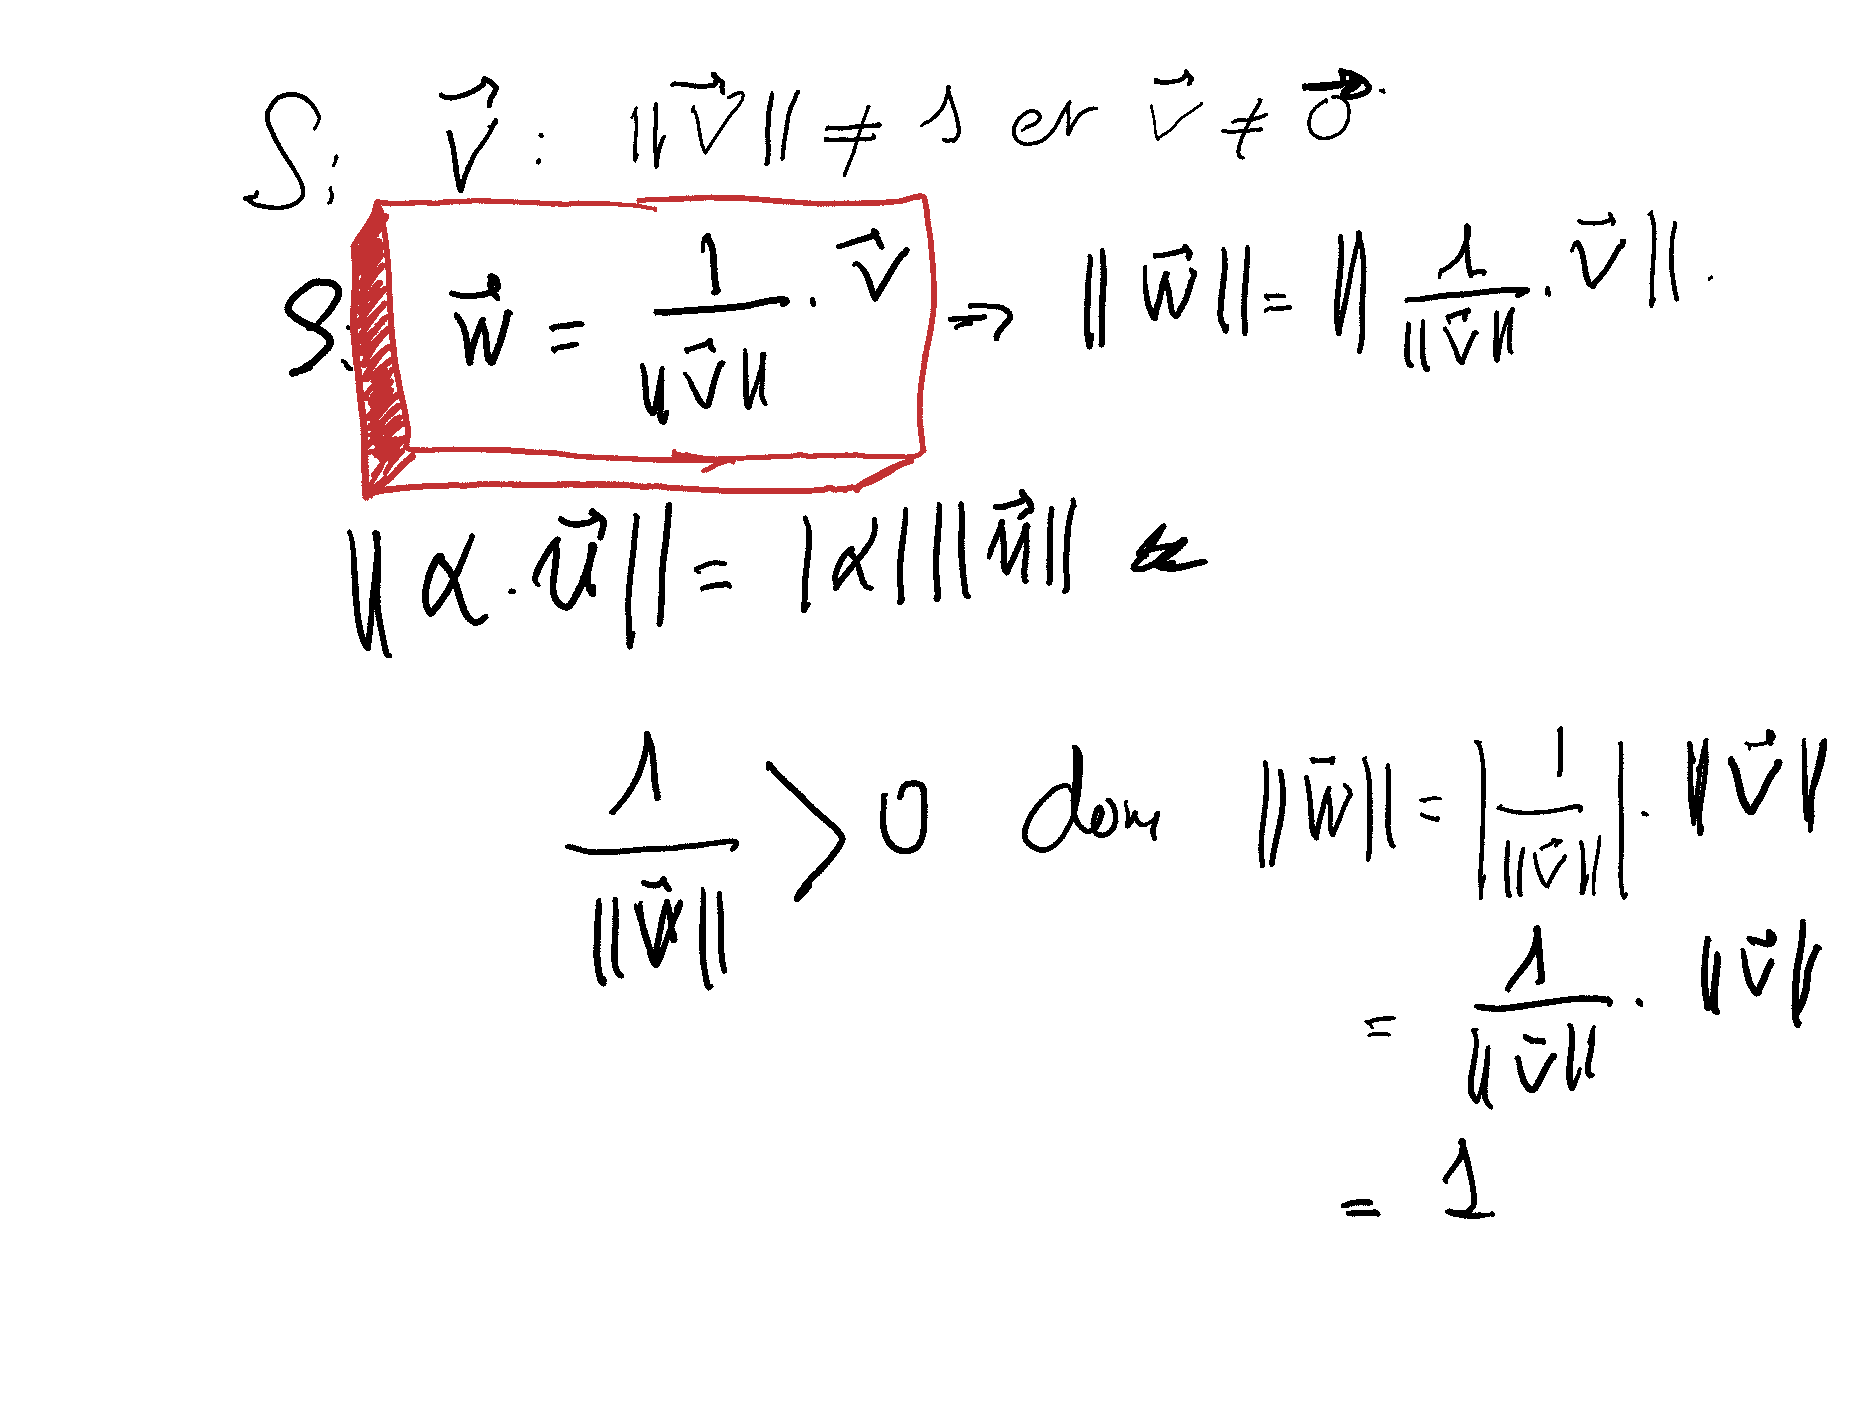 Si $\vec{v}$ : $\|\vec{v}\| \neq 1$ et $\vec{v} \neq \vec{0}$.
Si $\vec{w} = \frac{1}{\|\vec{v}\|} \cdot \vec{v}$ $\Rightarrow$ $\|\vec{w}\| = \|\frac{1}{\|\vec{v}\|} \cdot \vec{v}\|$.
$\|\alpha \cdot \vec{u}\| = |\alpha| \|\vec{u}\|$
$\frac{1}{\|\vec{v}\|} > 0$ donc $\|\vec{w}\| = \left|\frac{1}{\|\vec{v}\|}\right| \cdot \|\vec{v}\|$
$= \frac{1}{\|\vec{v}\|} \cdot \|\vec{v}\|$
$= 1$